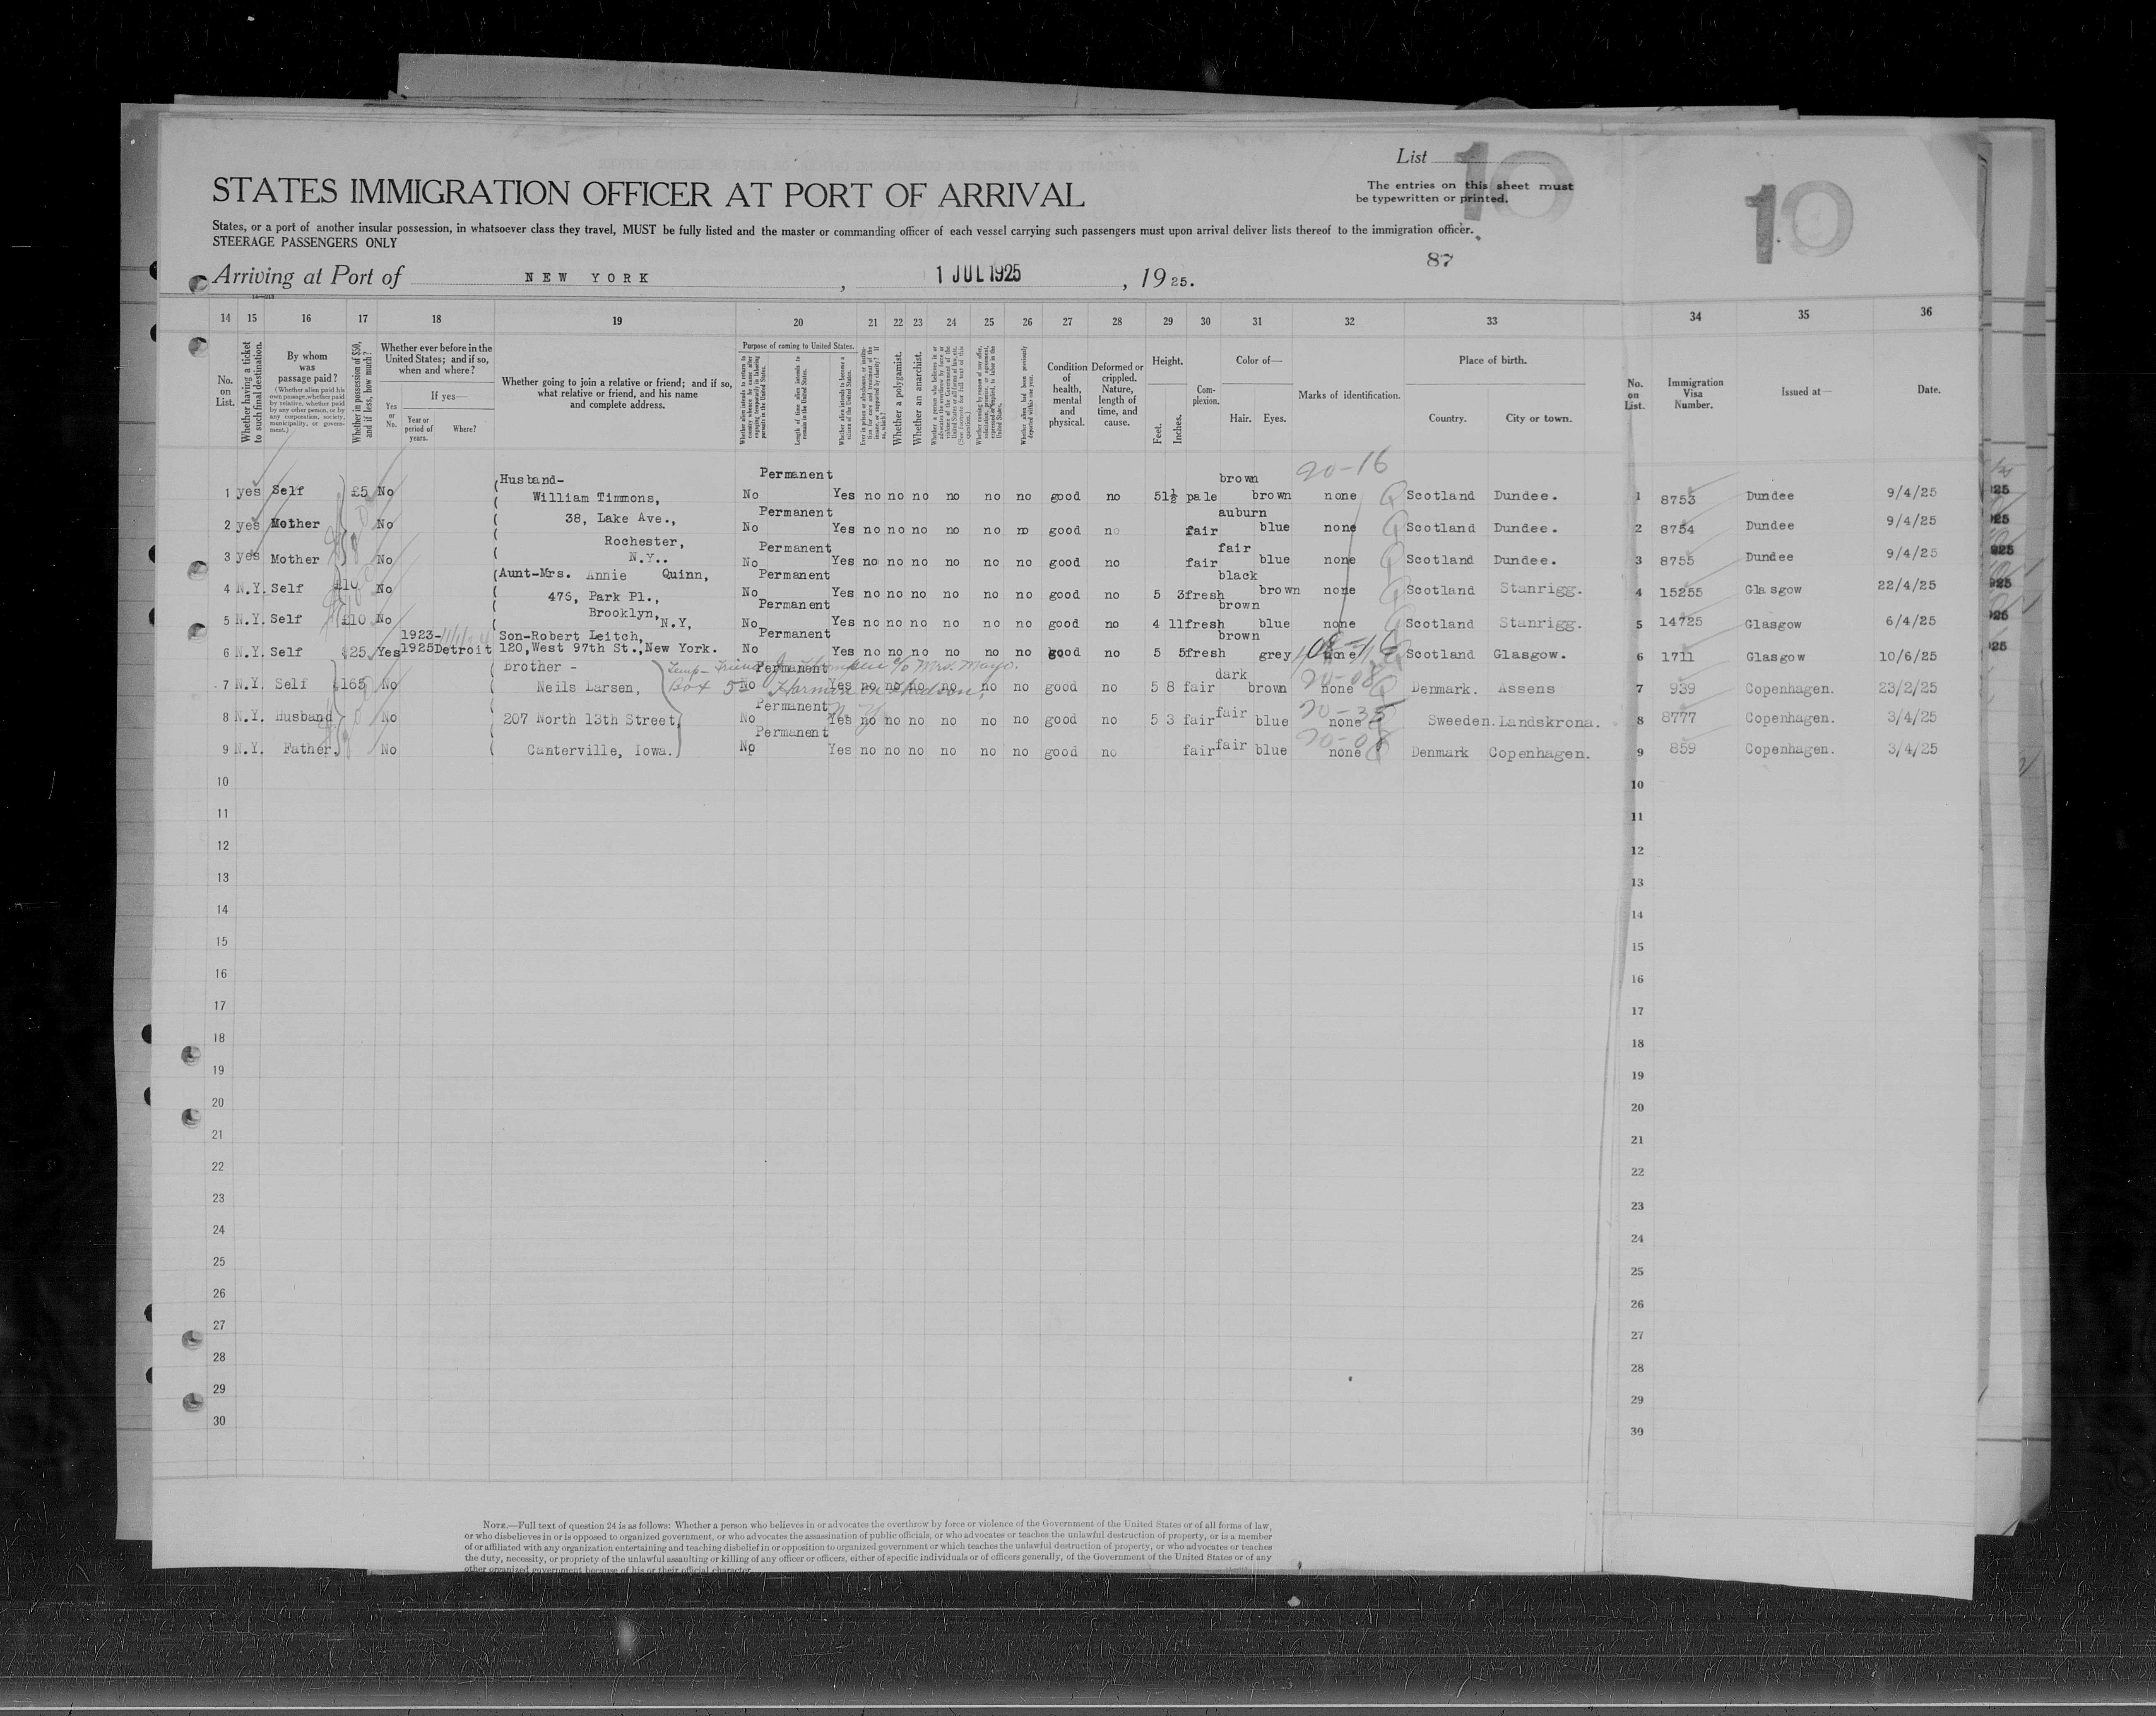 List 10
10
The entries on this sheet must
be typewritten or printed.
STATES IMMIGRATION OFFICER AT PORT OF ARRIVAL
States, or a port of another insular possession, in whatsoever class they travel, MUST be fully listed and the master or commanding officer of each vessel carrying such passengers must upon arrival deliver lists thereof to the immigration officer.
STEERAGE PASSENGERS ONLY
87
Arriving at Port of NEW YORK, 1 JUL 1925, 1925.
14 15 16 17 18 19 20 21 22 23 24 25 26 27 28 29 30 31 32 33 34 35 36
No. on List.
Whether having a ticket to such final destination.
By whom was passage paid?
(Whether alien paid his own passage, whether paid by relative, whether paid by any other person, or by any corporation, society, municipality, or government.)
Whether in possession of $50, and if less, how much?
Whether ever before in the United States; and if so, when and where?
Yes or No.
If yes—
Year or period of years.
Where?
Whether going to join a relative or friend; and if so, what relative or friend, and his name and complete address.
Purpose of coming to United States.
Length of time alien intends to remain in the United States.
Whether alien intends to become a citizen of the United States.
Whether a polygamist.
Whether an anarchist.
Condition of health, mental and physical.
Deformed or crippled. Nature, length of time, and cause.
Height.
Feet. Inches.
Complexion.
Color of—
Hair. Eyes.
Marks of identification.
Place of birth.
Country. City or town.
No. on List.
Immigration Visa Number.
Issued at—
Date.
Husband- Permanent brown 20-16
1 yes Self £5 No William Timmons, No Yes no no no no no no good no 5 1½ pale brown none Scotland Dundee. 1 8753 Dundee 9/4/25
38, Lake Ave., Permanent auburn
2 yes Mother No No Yes no no no no no no good no fair blue none Scotland Dundee. 2 8754 Dundee 9/4/25
Rochester, Permanent fair
3 yes Mother No N.Y.. No Yes no no no no no no good no fair blue none Scotland Dundee. 3 8755 Dundee 9/4/25
Aunt-Mrs. Annie Quinn, Permanent black
4 N.Y. Self £10 No 476, Park Pl., No Yes no no no no no no good no 5 3 fresh brown none Scotland Stanrigg. 4 15255 Glasgow 22/4/25
Brooklyn, N.Y, Permanent brown
5 N.Y. Self £10 No No Yes no no no no no no good no 4 11 fresh blue none Scotland Stanrigg. 5 14725 Glasgow 6/4/25
1923- Son-Robert Leitch, Permanent brown
6 N.Y. Self $25. Yes 1925 Detroit 120, West 97th St., New York. No Yes no no no no no no good no 5 5 fresh grey none Scotland Glasgow. 6 1711 Glasgow 10/6/25
Brother - Permanent dark 20-08
7 N.Y. Self 165 No Neils Larsen, No Yes no no no no no no good no 5 8 fair brown none Denmark. Assens 7 939 Copenhagen. 23/2/25
Permanent 20-35
8 N.Y. Husband No 207 North 13th Street, No Yes no no no no no no good no 5 3 fair fair blue none Sweeden. Landskrona. 8 8777 Copenhagen. 3/4/25
Permanent 20-08
9 N.Y. Father. No Canterville, Iowa. No Yes no no no no no no good no fair fair blue none Denmark Copenhagen. 9 859 Copenhagen. 3/4/25
10 10
11 11
12 12
13 13
14 14
15 15
16 16
17 17
18 18
19 19
20 20
21 21
22 22
23 23
24 24
25 25
26 26
27 27
28 28
29 29
30 30
NOTE.—Full text of question 24 is as follows: Whether a person who believes in or advocates the overthrow by force or violence of the Government of the United States or of all forms of law,
or who disbelieves in or is opposed to organized government, or who advocates the assassination of public officials, or who advocates or teaches the unlawful destruction of property, or is a member
of or affiliated with any organization entertaining and teaching disbelief in or opposition to organized government or which teaches the unlawful destruction of property, or who advocates or teaches
the duty, necessity, or propriety of the unlawful assaulting or killing of any officer or officers, either of specific individuals or of officers generally, of the Government of the United States or of any
other organized government because of his or their official character.